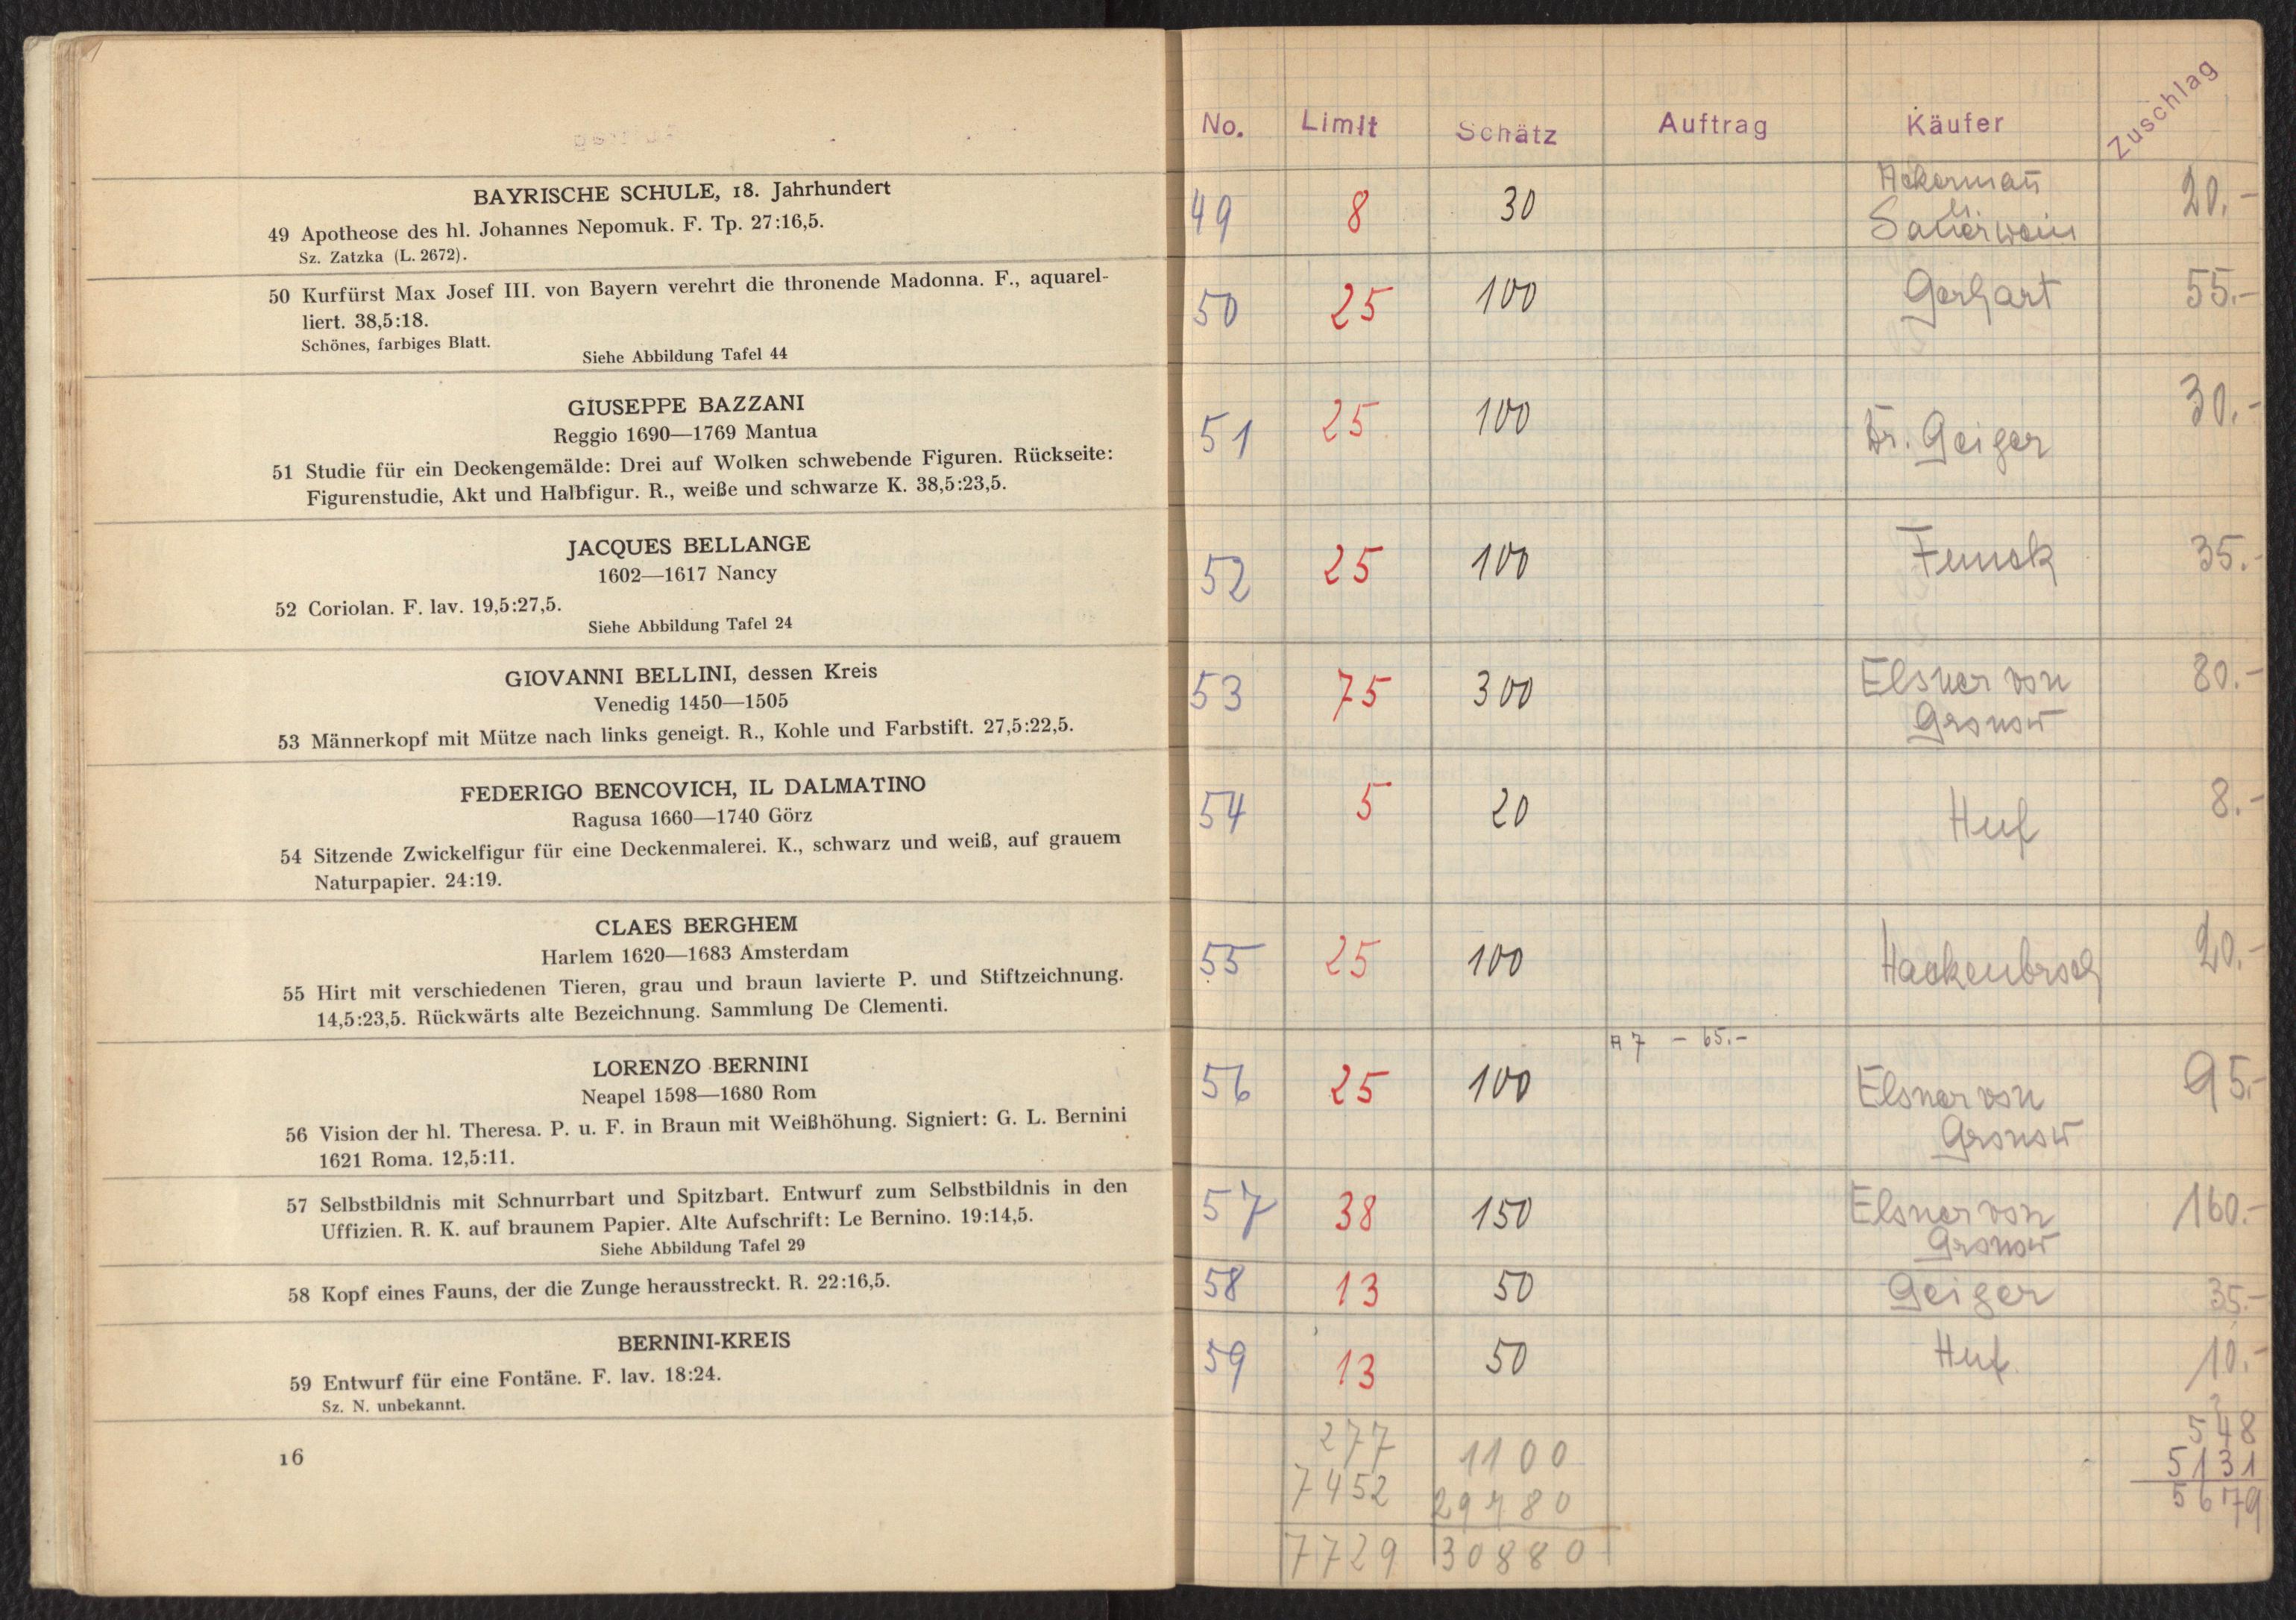 BAYRISCHE SCHULE, 18. Jahrhundert
49 Apotheose des hl. Johannes Nepomuk. F. Tp. 27:16,5.
Sz. Zatzka (L. 2672).
50 Kurfürst Max Josef III. von Bayern verehrt die thronende Madonna. F., aquarel-
liert. 38,5:18.
Schönes, farbiges Blatt.
Siehe Abbildung Tafel 44
GIUSEPPE BAZZANI
Reggio 1690—1769 Mantua
51 Studie für ein Deckengemälde: Drei auf Wolken schwebende Figuren. Rückseite:
Figurenstudie, Akt und Halbfigur. R., weiße und schwarze K. 38,5:23,5.
JACQUES BELLANGE
1602—1617 Nancy
52 Coriolan. F. lav. 19,5:27,5.
Siehe Abbildung Tafel 24
GIOVANNI BELLINI, dessen Kreis
Venedig 1450—1505
53 Männerkopf mit Mütze nach links geneigt. R., Kohle und Farbstift. 27,5:22,5.
FEDERIGO BENCOVICH, IL DALMATINO
Ragusa 1660—1740 Görz
54 Sitzende Zwickelfigur für eine Deckenmalerei. K., schwarz und weiß, auf grauem
Naturpapier. 24:19.
CLAES BERGHEM
Harlem 1620—1683 Amsterdam
55 Hirt mit verschiedenen Tieren, grau und braun lavierte P. und Stiftzeichnung.
14,5:23,5. Rückwärts alte Bezeichnung. Sammlung De Clementi.
LORENZO BERNINI
Neapel 1598—1680 Rom
56 Vision der hl. Theresa. P. u. F. in Braun mit Weißhöhung. Signiert: G. L. Bernini
1621 Roma. 12,5:11.
57 Selbstbildnis mit Schnurrbart und Spitzbart. Entwurf zum Selbstbildnis in den
Uffizien. R. K. auf braunem Papier. Alte Aufschrift: Le Bernino. 19:14,5.
Siehe Abbildung Tafel 29
58 Kopf eines Fauns, der die Zunge herausstreckt. R. 22:16,5.
BERNINI-KREIS
59 Entwurf für eine Fontäne. F. lav. 18:24.
Sz. N. unbekannt.
16
No. Limit Schätz Auftrag Käufer Zuschlag
49 8 30 Ackermañ 20.-
Sauerwein
50 25 100 Gerhart 55.-
51 25 100 Dr. Geiger 30.-
52 25 100 35.-
53 75 300 Elsner von 80.-
Gronow
54 5 20 Huf 8.-
55 25 100 Hackenbroch 20.-
A 7 - 65.-
56 25 100 Elsner von 95.-
Gronow
57 38 150 Elsner von 160.-
Gronow
58 13 50 Geiger 35.-
59 13 50 Huf 10.-
277 1100 548
7452 29780 5131
7729 30880 5679